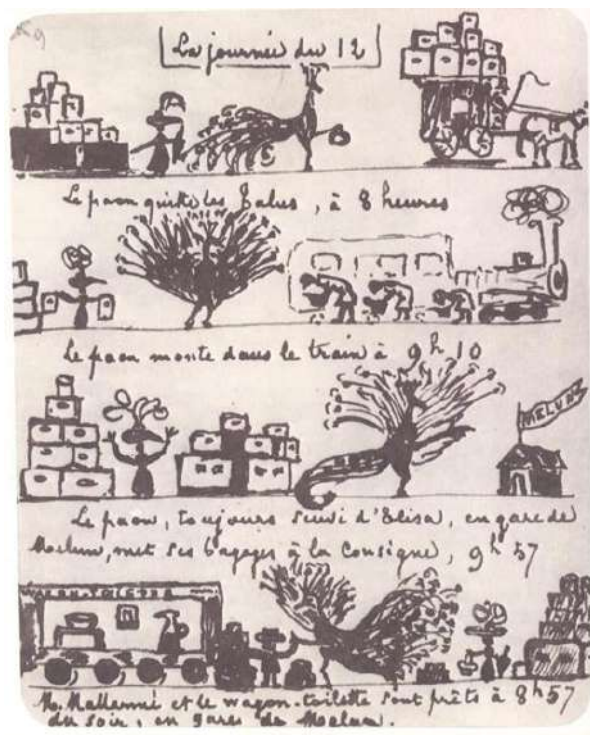 La journée du 12
Le paon quitte les Talus, à 8 heures
Le paon monte dans le train à 9h 10
MELUN
Le paon, toujours suivi d'Elisa, en gare de
Moelun, met ses bagages à la Consigne, 9h 57
WAGON-TOILETTE
M. Mallarmé et le wagon-toilette sont prêts à 8h57
du soir, en gare de Moelun.